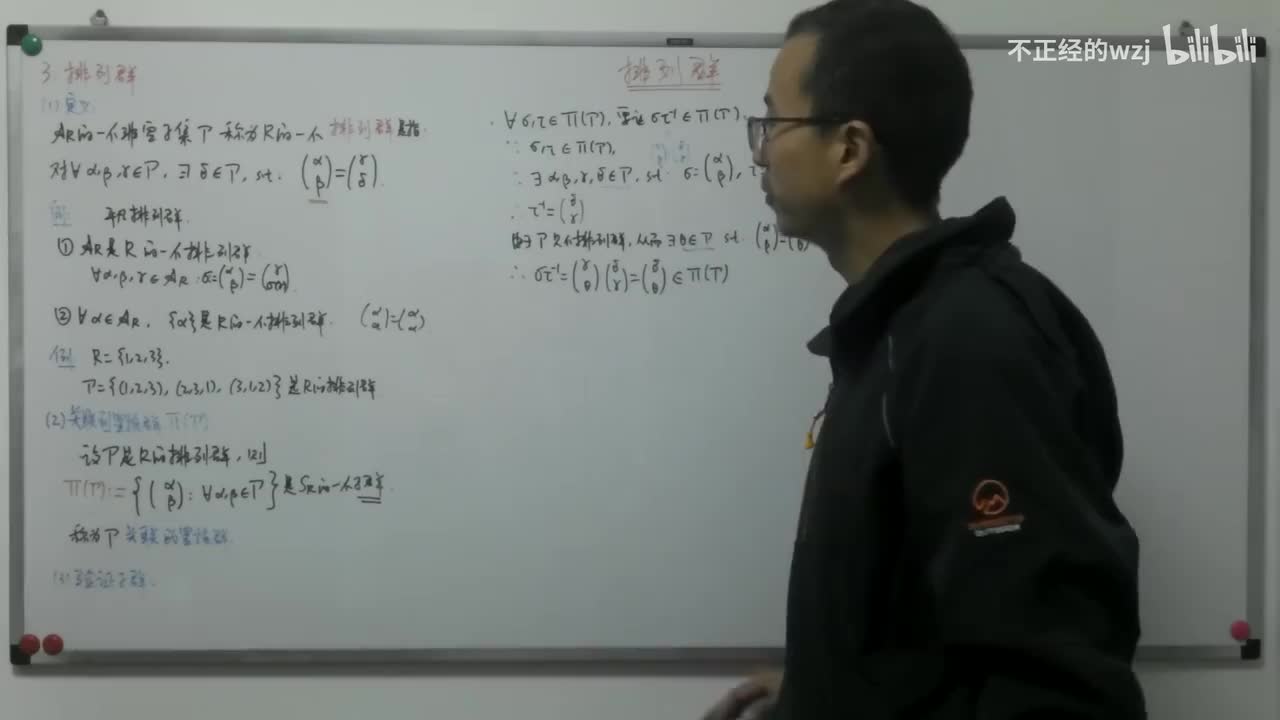 不正经的wzj bilibili
排列群
3. 排列群
(1) 定义
A_R的一个非空子集 T 称为R的一个排列群是指
对∀α,β,γ∈T, ∃δ∈T, s.t. (α β)=(γ δ).
例 平凡排列群.
① A_R是R的一个排列群
∀α,β,γ∈A_R σ=(α β)=(γ σ(γ)).
② ∀α∈A_R, {α}是R的一个排列群. (α α)=(α α)
例 R={1,2,3}.
T={(1,2,3), (2,3,1), (3,1,2)}是R的排列群
(2) 关联的置换群 Π(T)
设T是R的排列群, 则
Π(T):={(α β): ∀α,β∈T}是S_R的一个子群.
称为T关联的置换群.
(3) 验证子群.
∀σ,τ∈Π(T), 要证 στ⁻¹∈Π(T).
∵ σ,τ∈Π(T),
∴ ∃α,β,γ,δ∈T, s.t. σ=(α β), τ
∴ τ⁻¹=(δ γ)
由于T是个排列群, 从而∃θ∈T s.t. (α β)=(θ)
∴ στ⁻¹=(γ θ)(δ γ)=(δ θ)∈Π(T)